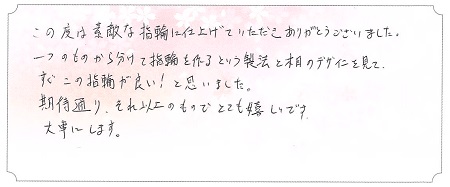 この度は素敵な指輪に仕上げていただきありがとうございました。
一つのものから分けて指輪を作るという製法と木目のデザインを見て、
すぐこの指輪が良い！と思いました。
期待通り、それ以上のものでとても嬉しいです。
大事にします。